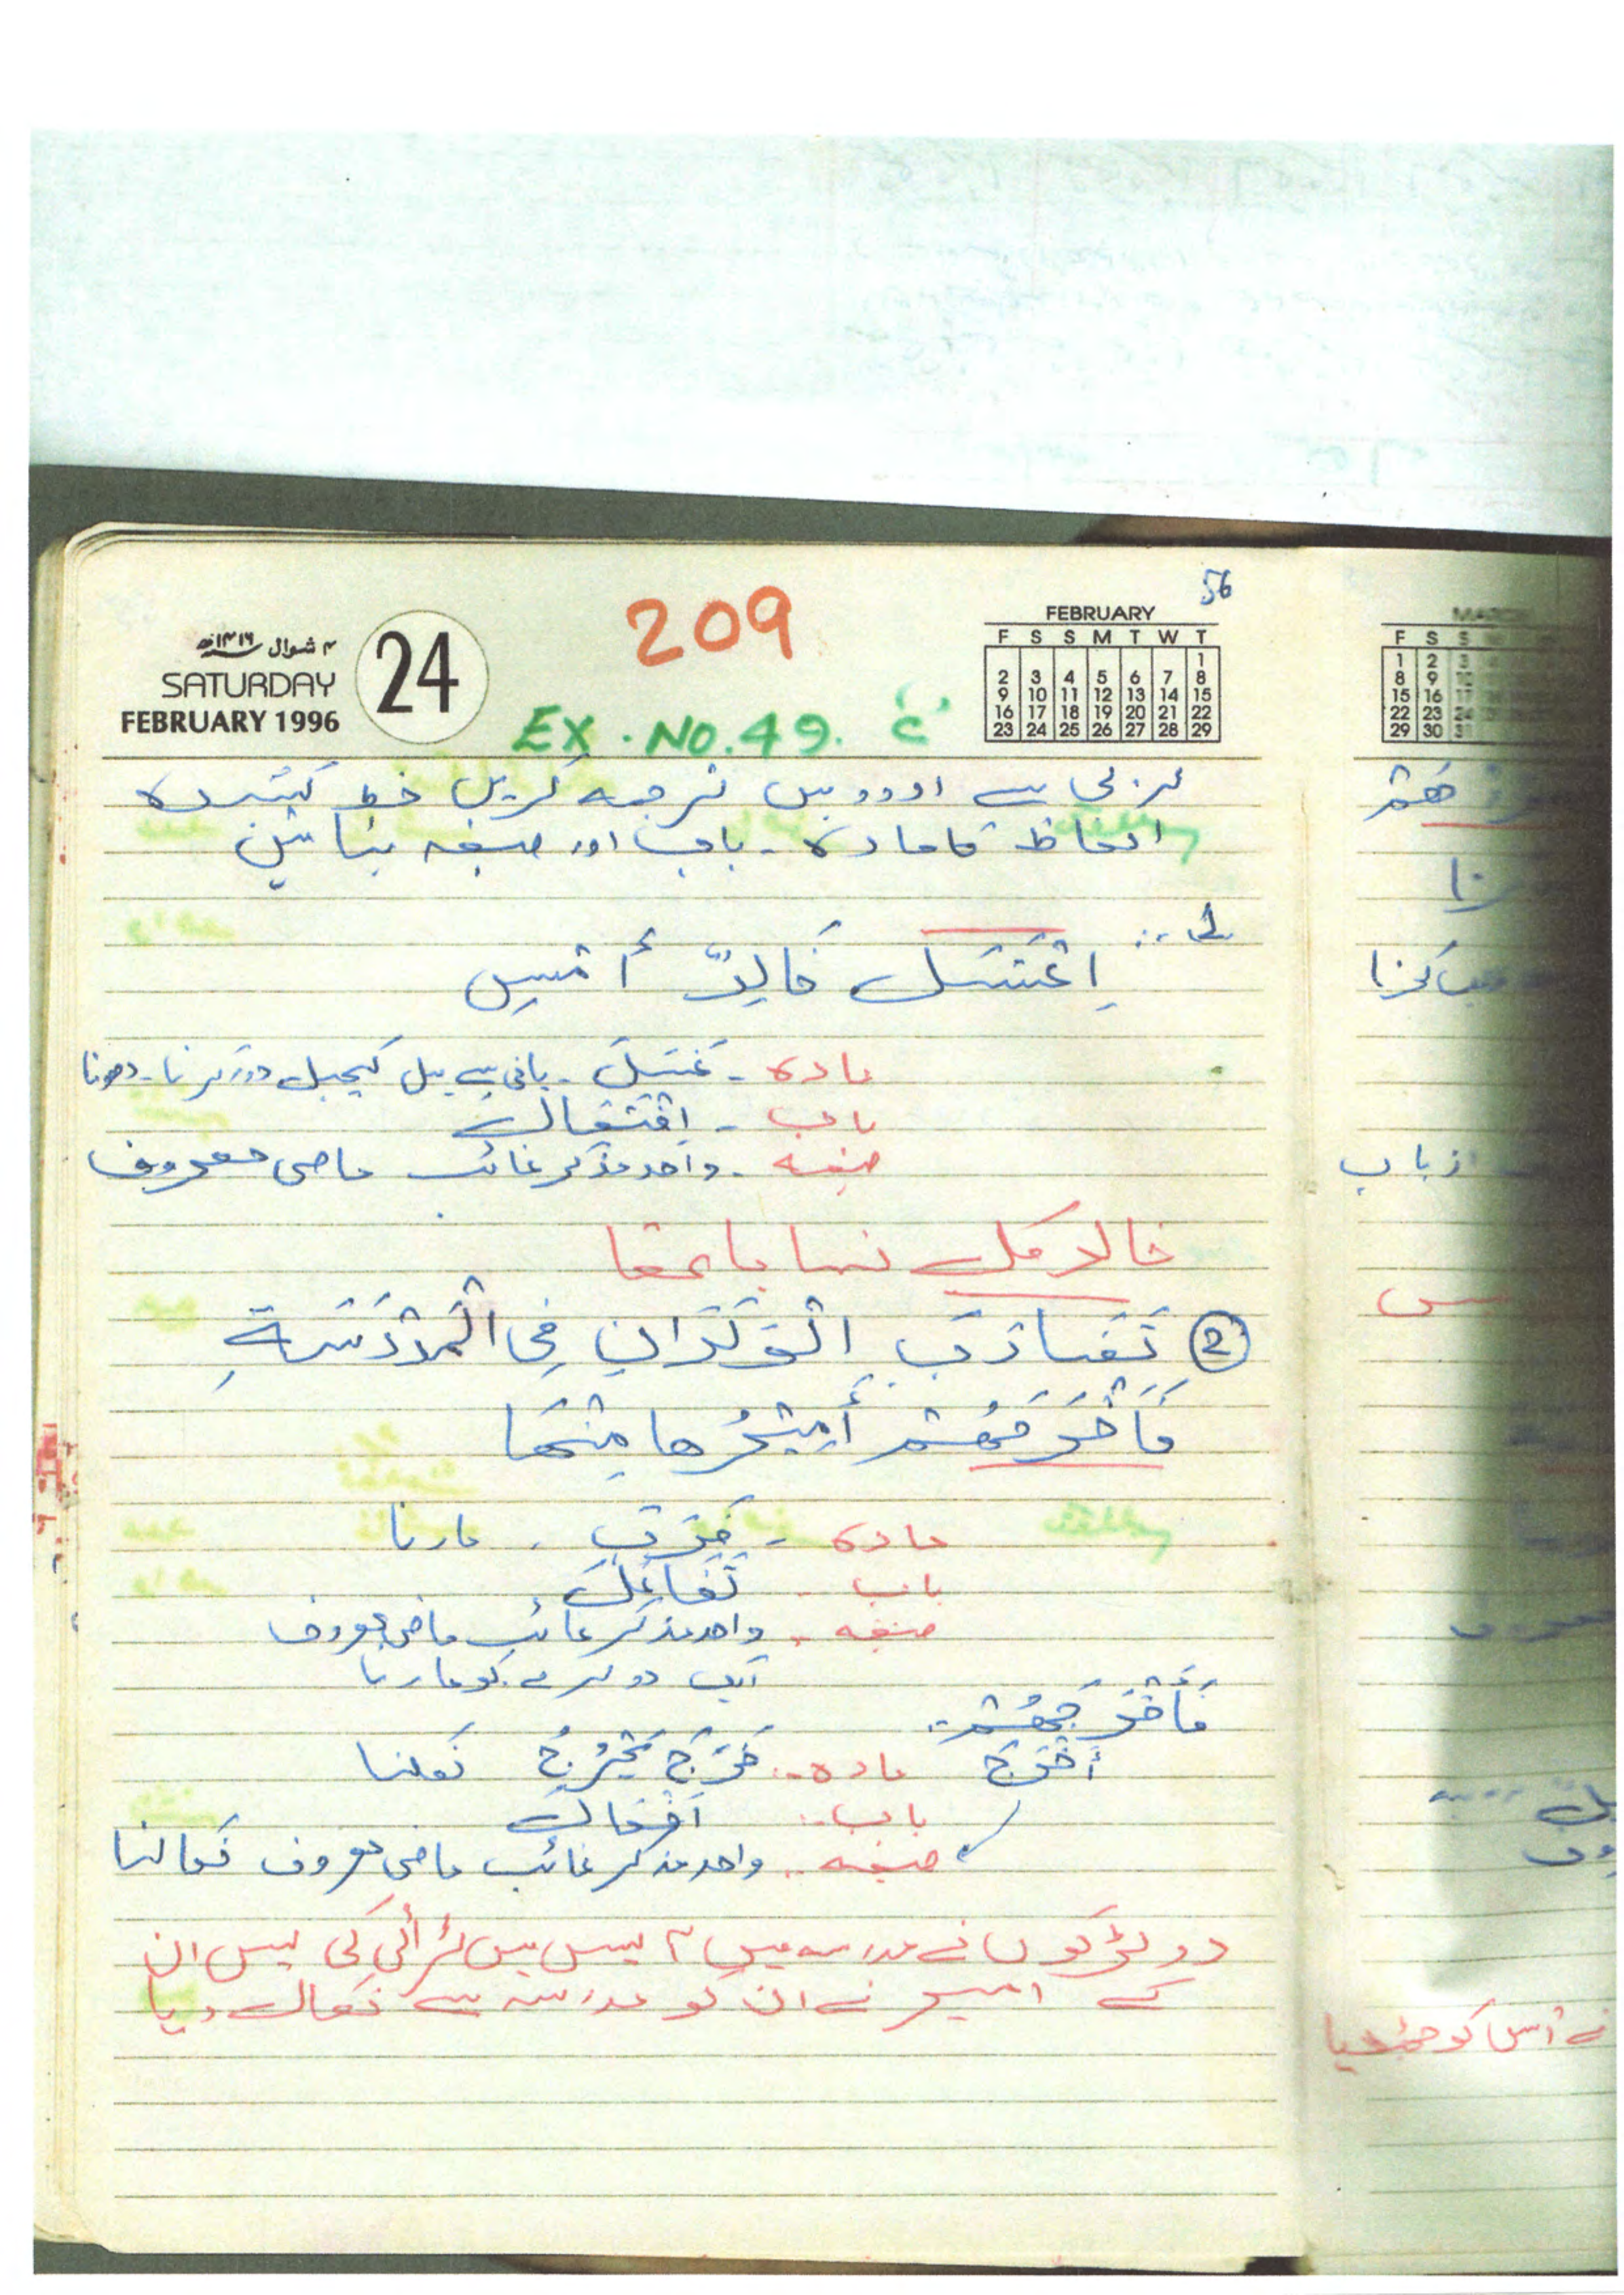 56
209
۴ شوال ۱۴۱۶ھ
SATURDAY
FEBRUARY 1996
24
EX. NO. 49. ع
FEBRUARY
F S S M T W T
1
2 3 4 5 6 7 8
9 10 11 12 13 14 15
16 17 18 19 20 21 22
23 24 25 26 27 28 29
عربی سے اردو میں ترجمہ کریں خط کشیدہ
الفاظ کا مادہ - باب اور صیغہ بتائیں
1 :
اِغْتَسَلَ خَالِدٌ أَمْسِ
مادہ - غَسَلَ - پانی سے میل کچیل دور کرنا - دھونا
باب - اِفْتِعَال
صیغہ - واحد مذکر غائب ماضی معروف
خالد کل نہایا تھا
② تَضَارَبَ الْوَلَدَانِ فِی الْمَدْرَسَةِ
فَأَخْرَجَهُمْ أَمِيْرُهَا مِنْهَا
مادہ - ضَرَبَ - مارنا
باب - تَفَاعُل
صیغہ - واحد مذکر غائب ماضی معروف
ایک دوسرے کو مارنا
فَأَخْرَجَهُمْ :
أَخْرَجَ مادہ : خَرَجَ يَخْرُجُ نکلنا
باب : اِفْعَال
صیغہ : واحد مذکر غائب ماضی معروف نکالنا
دو لڑکوں نے مدرسہ میں آپس میں لڑائی کی پس ان
کے امیر نے ان کو مدرسہ سے نکال دیا
F S S
1 2 3
8 9 10
15 16 17
22 23 24
29 30 31
از باب
نے اس کو